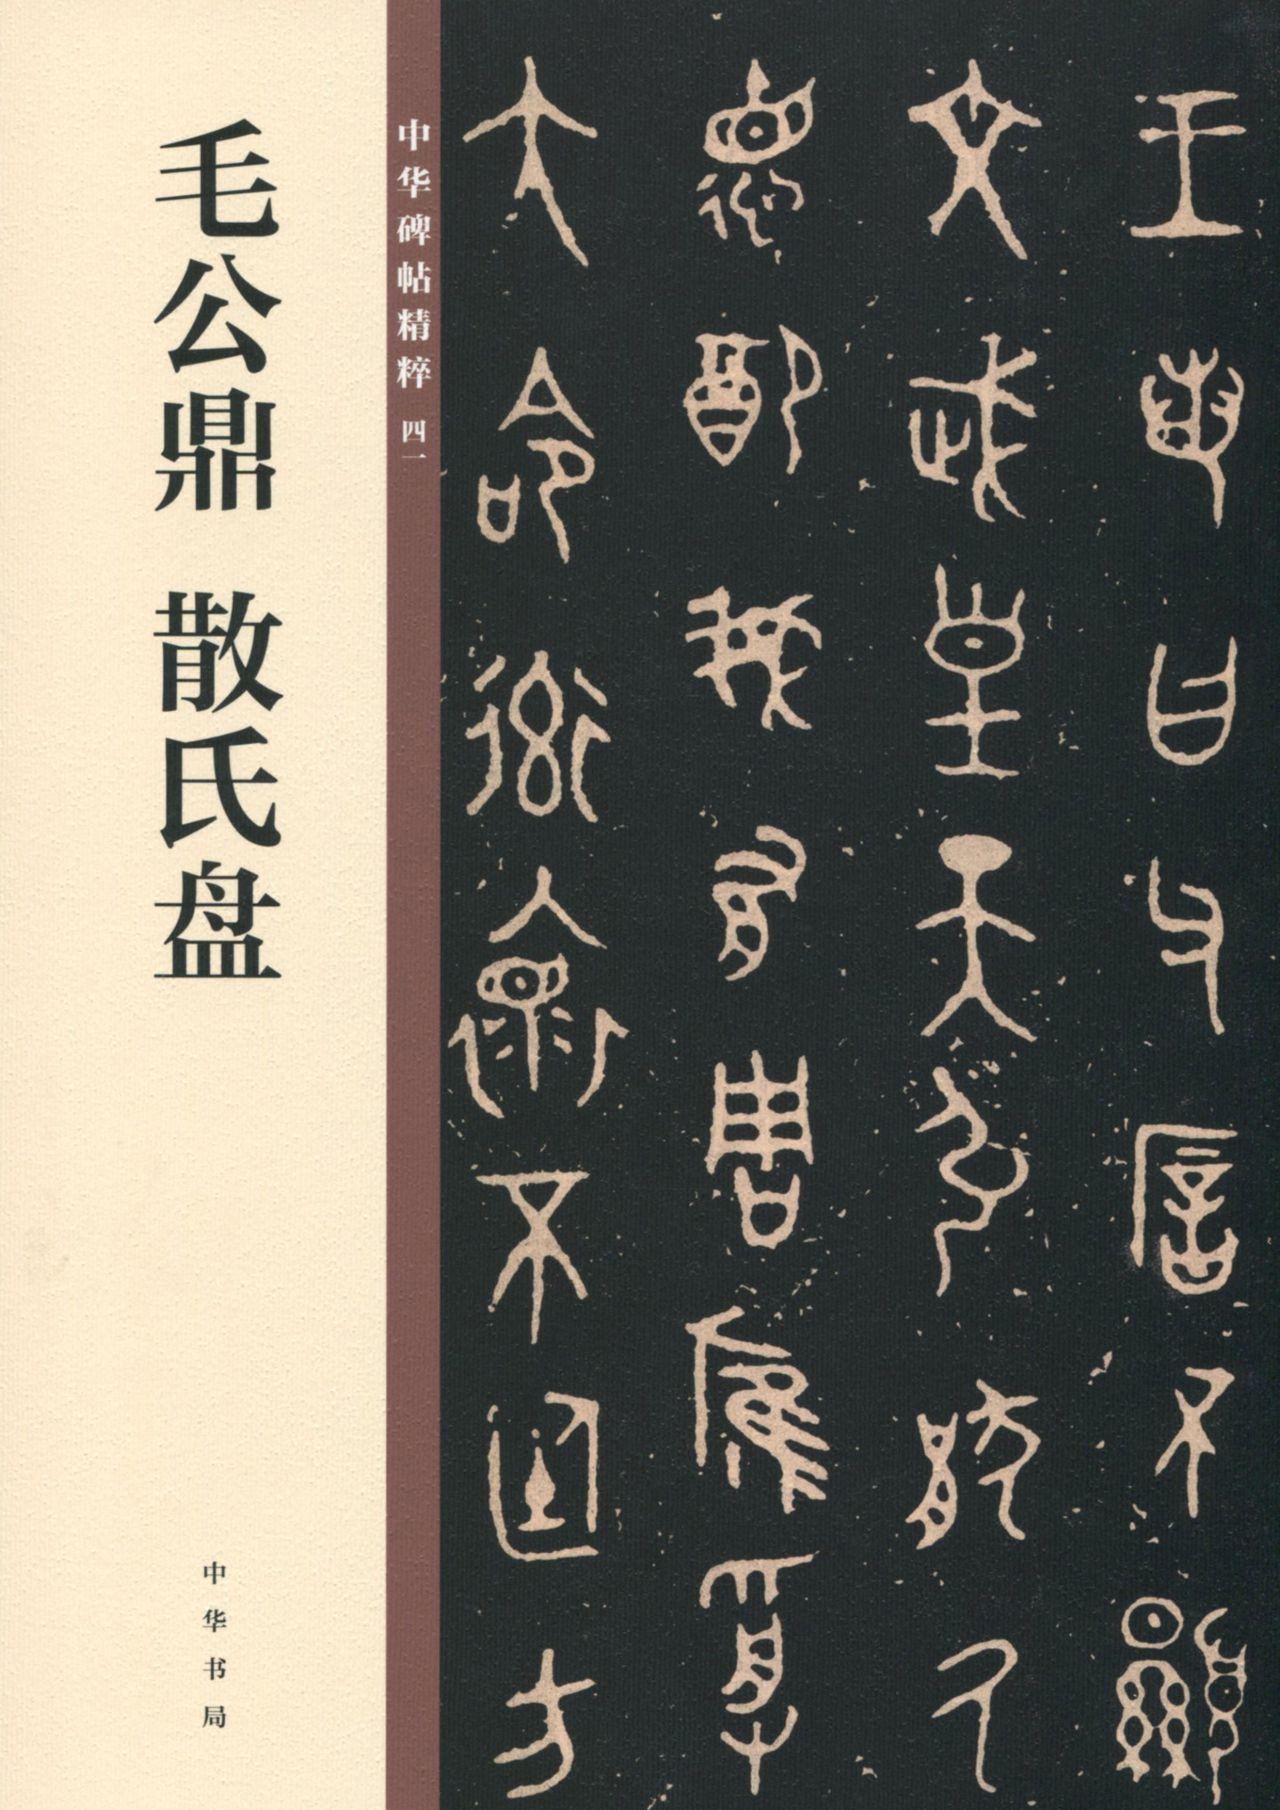 毛公鼎 散氏盘
中华碑帖精粹 四一
王若曰父厝不顯
文武皇天弘猒氒
德配我有周膺受
大命率褱不廷方
中华书局